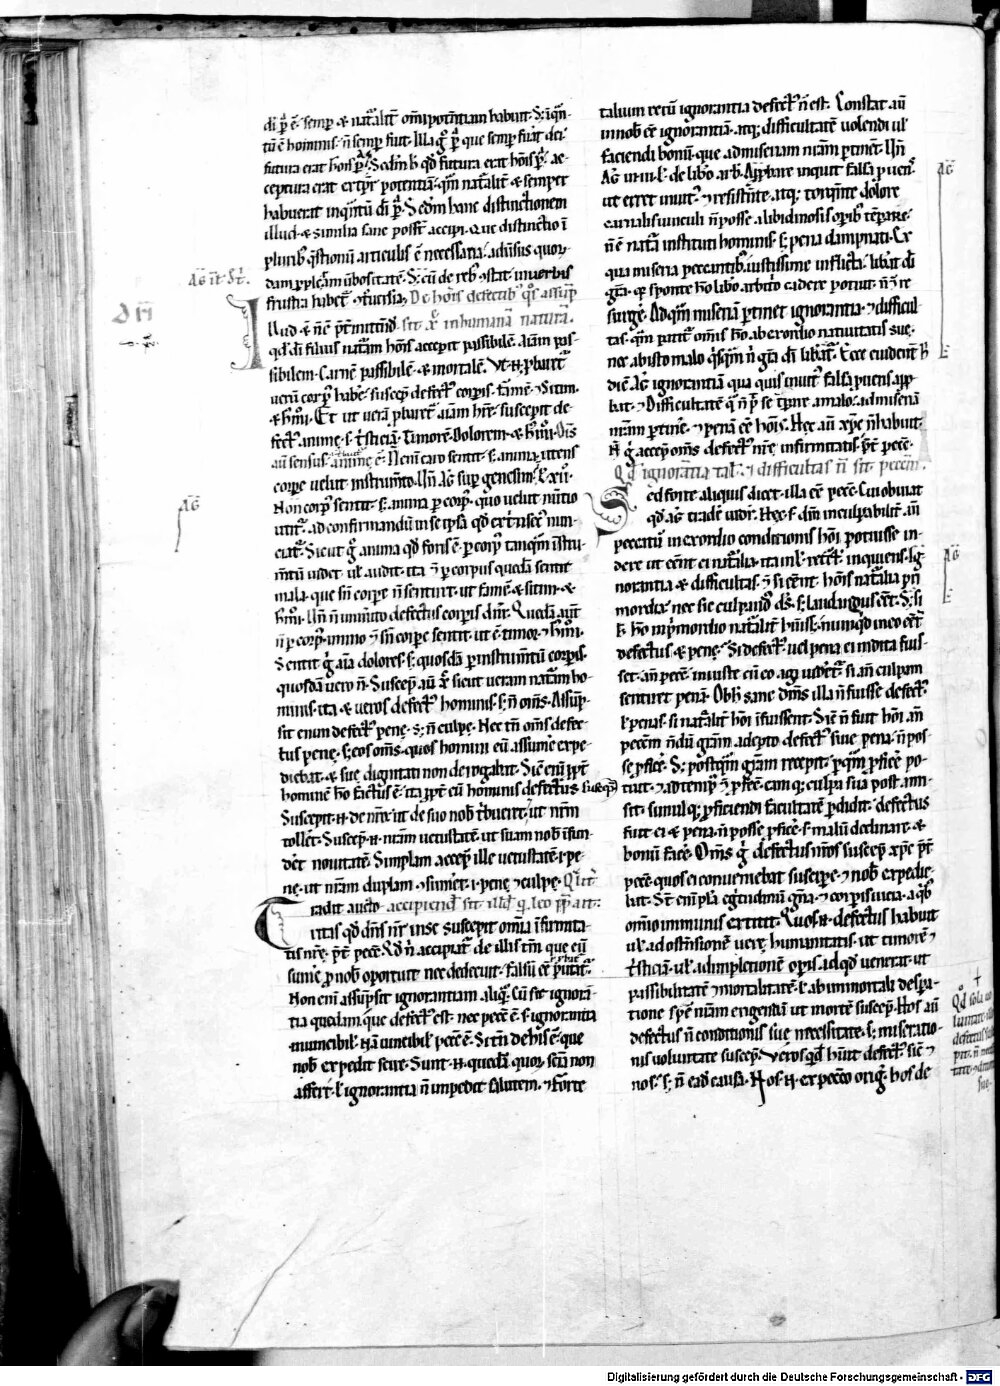 di p̄ ē. semp & nat᷑alit̄ om̄ipotentiam habuit. S; inqn̄-
tū ē hominis. n̄ semp fuit. Illa gͦ p̄ que semp fuit dei
futura erat hoīs p̄. Sedm̄ h̄ qd̄ futura erat hoīs p̄. ac-
ceptura erat ex tp̄r potentiā. qm̄ nat᷑alit̄ & semper
habuerat inqn̄tū di p̄. Sedm̄ hanc distinctionem
illud & similia sane posst̄ accipi. Que distinctio ī
plurib᷒ q̄stionū articulis ē necessaria. adūsus quor̄
dam pplexam ūbositatē. S; cū de reb᷒ ɔstat. in uerbis
frustra habet᷑ ɔt᷑uersia. De hoīs defectib᷒ qͦs assūp
Illud & n̄ ē p̄t̄mittend̄. sit xp̄c in humana natura.
qd̄ di filius nat᷑am hoīs accepit passibilē. aīam pas-
sibilem. carnē passibilē & mortalē. Vt .n. pbaret᷑
uerū corp᷒ habe. suscep̄ defect᷒ corpis. famē. & sitim.
& h᷒mōi. Et ut uerā pbaret᷑ aīam hre᷑. suscepit de-
fect᷒ anime. s. tͥsticiā. Timorē. Dolorem. & h᷒mōi. Om̄s
aū sensus. anime ē. N enī caro sentit. s. anima utens
corpe uelut instrum̄to. Un̄ Aḡ sup genesim. l. xii.
Non corp᷒ sentit. s. anima p corp᷒. quo uelut nūtio
utit᷑. ad confirmandū in se ipsa qd̄ extͥnsec᷒ nun-
ciat᷑. Sicut gͦ anima qd̄ foris ē. p corp᷒ tanqm̄ īstru-
m̄tū uidet. ul᷑ audit. ita ɔ̄ p corpus quedā sentit
mala. que sn̄ corpe n̄ sentiret. ut famē. & sitim. &
h᷒mōi. Un̄ n̄ inm̄ito defectus corpis dn̄t᷑. Quedā aut̄
n̄ p corp᷒. immo ɔ̄ sn̄ corpe sentit. ut ē timor. ɔ h᷒mōi.
Sentit gͥ aīa dolores. s; quosdā p instrum̄tū corpis.
quosdā uero n̄. Suscep̄ aū xp̄c sicut ueram nat᷑am ho-
minis. ita & ueros defect᷒ hominis. s; n̄ om̄s. Assūp-
sit enim defect᷒ pene. s; n̄ culpe. Nec tn̄ om̄s defec-
tus pene. s; eos om̄s. quos homini eū assume expe-
diebat. & sue dignitati non derogabat. Sic enī pp̄t
hominē ho factus ē. ita pp̄t eū hominis defectus suscep̄.
Suscepit .n. de nr̄o. ut de suo nob᷒ t᷑bueret. ut nr̄m
tollet᷑. Suscep̄ .n. nr̄am uetustatē. ut suam nob᷒ īfun-
det᷑ nouitatē. Simplam accep̄ ille uetustatē .i. pe-
ne. ut nr̄am duplam ɔsumet᷑. i. pene & culpe. Qͣlit᷑
Tradit aucto- accipiend̄ sit illd̄ q̄ leo pp̄ ait:
ritas qd̄ dn̄s nr̄ in se suscepit om̄ia īfirmita-
tis nr̄e. p̄t pecc̄. Qd̄ n̄ accipiat᷑ de illis tm̄ que eū
sume p nob᷒ oportuit. nec dedecuit. falsū eē pbat᷑.
Non enī assūpsit ignorantiam aliqͣ. Cū sit ignorā-
tia quedam. que defect᷒ est. nec pecc̄ ē. s. ignorantia
inuincibil᷑. Nā uincibil᷑ pecc̄ ē. Si tn̄ de his ē. que
nob᷒ expedit scire. Sunt .n. quedā quor̄ scīa non
affert. l᷑ ignorantia n̄ impedit salutem. ɔ forte
talium rerū ignorantia defect᷒ n̄ est. Constat aū
in nob᷒ eē ignorantiā. atq; difficultatē uolendi ul᷑
faciendi bonū. que ad miseriam nr̄am ptinet. Un̄
Aḡ in .iii. l᷑. de libo arb᷒. Appbare inquit falsa p ueris.
ut erret inuit᷒. ɔ resistente atq; torqn̄te dolore
carnalis uinculi n̄ posse a libidinosis opib᷒ tēpare.
n̄ ē nat᷑a instituti hominis. s; pena dampnati. Ex
qua miseria peccantib᷒ iustissime inflicta. libat di
gr̄a. qͥ sponte ho libo arbitͥo cadere potuit. n̄ ɔ̄ re
surge. Ad qm̄ miseriā ptinet ignorantia. ɔ difficul-
tas. qm̄ patit᷑ om̄is ho ab exordio natiuitatis sue.
nec ab isto malo qͥsqm̄ n̄ gr̄a di libat᷑. Ecce euident᷑ h̄
dic̄ Aḡ ignorantiā qua quis inuit᷒ falsa p ueris app-
bat. ɔ Difficultatē qͣ n̄ p̄ se tēpare a malo. ad miseriā
nr̄am ptine. ɔ penā eē hoīs. Hec aū xp̄c n̄ habuit.
N gͥ accep̄ om̄s defect᷒ nr̄e infirmitatis. p̄t pecc̄.
Qd̄ ignorantia tal᷑. ɔ difficultas n̄ sit peccm̄.
Sed forte aliquis dicet. illa eē pecc̄. Cui obuiat
qd̄ Aḡ tradē uidr̄. Hec .s. dm̄ inculpabilit᷑ añ
peccatū in exordio conditionis hoī potuisse in-
dere. ut eēnt ei nat᷑alia. ita in l᷑. ret᷑ct᷑. inquiens. Ig
norantia & difficultas. ɔ̄ si eēnt hoīs nat᷑alia pri
mordia. nec sic culpand᷒ ds̄. s; laudandus eēt. S; si
l᷑ ho in pͥmordio nat᷑alit᷑ hūiss; nūqd̄ in eo eēt
defectus & pene. Si defect᷒. uel pena ei indita fuis-
set. añ pecc̄. iniuste cū eo agi uidet᷑. si añ culpam
sentiret penā. Ob h̄ sane dm̄s illa n̄ fuisse defect᷒.
l᷑ penas. si nat᷑alit᷑ hoī īfuissent. Sic n̄ fuit hoī añ
peccm̄ n̄dū gr̄am adepto defect᷒ siue pena. n̄ pos-
se pfice. S; postqm̄ gr̄am recepit. p qm̄ pfice po-
tuit. ɔ ad temp᷒ ɔ̄ pfec̄. eamq; culpa sua post ami-
sit. simulq; pficiendi facultatē pdidit. defectus
fuit ei & pena n̄ posse pfice. s. malū declinare. &
bonū face. Om̄s gͥ defectus nr̄os suscep̄ xp̄c p̄t
pecc̄. quos ei conueniebat suscipe. & nob᷒ expedie-
bat. St̄ enī plͣ egͥtudinū gn̄a. & corpis uicia. a qͥb᷒
om̄io immunis extitit. Quos .n. defectus habuit
ul᷑ ad ostensionē uere humanitatis. ut timorē ɔ
t᷑sticiā. ul᷑ ad impletionē opis ad qd̄ uenerat. ut
passibilitatē ɔ mortalitatē. l᷑ ab immortali despa-
tione spē nr̄am erigendā. ut mortē suscep̄. Hos aū
defectus n̄ conditionis sue necessitate. s; miseratio-
nis uoluntate suscep̄. Veros qͥd̄ hūit defect᷒ sic ɔ
nos. s; n̄ ead̄ causa. Nos .n. ex pecc̄o origͥ. hos de
Aḡ
Aḡ
Aḡ
Qd̄ sola uo
luntate